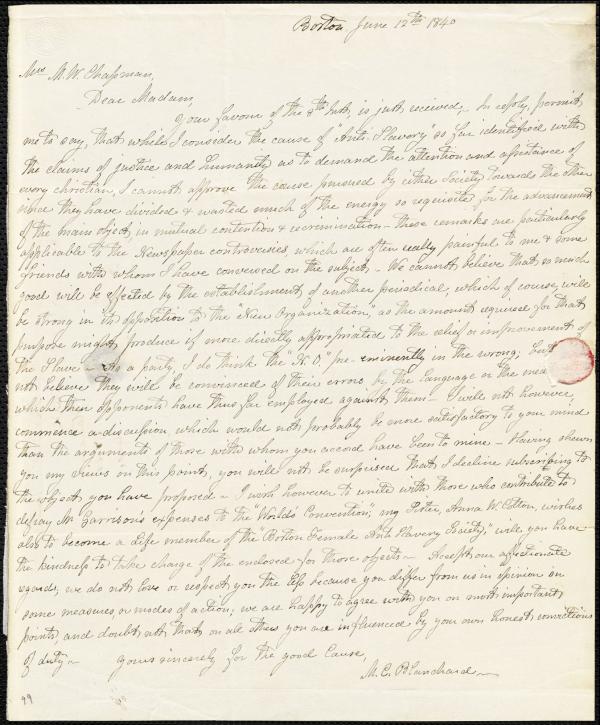 Boston June 12th 1840
Mrs M. W. Chapman,
Dear Madam,
Your favour of the 8th Inst, is just received,- In reply, permit
me to say, that while I consider the cause of "Anti-Slavery" so far identified with
the claims of justice and humanity as to demand the attention and assistance of
every christian, I cannot approve the course pursued by either Society towards the other
since they have divided & wasted much of the energy so requisite for the advancement
of the main object, in mutual contention & recrimination - these remarks are particularly
applicable to the Newspaper controversies, which are often really painful to me & some
friends with whom I have conversed on the subject - We cannot believe that so much
good will be effected by the establishment of another periodical, which of course, will
be strong in its opposition to the "New Organization," as the amount required for that
purpose might produce if more directly appropriated to the relief or improvement of
the Slave - As a party, I do think the "N.O." pre-eminently in the wrong, but
not believe they will be convinced of their errors, by the language or the mea
which their opponents have thus far employed against them - I will not however,
commence a discussion which would not probably be more satisfactory to your mind
than the arguments of those with whom you accord have been to mine - Having shewn
you my views on this point, you will not be surprised that I decline subscribing to
the object you have proposed - I wish however to unite with those who contribute to
defray Mr Garrison's expenses to the "World's Convention"; my Sister, Anna W. wishes
also to become a Life member of the "Boston Female Anti Slavery Society," will you have
the kindness to take charge of the enclosed for those objects - Accept our affectionate
regards, we do not love or respect you the less because you differ from us in opinion on
some measures, or modes of action, we are happy to agree with you on most important
points, and doubt not that on all others you are influenced by your own honest convictions
of duty - yours sincerely for the good Cause,
M. C. Blanchard -
99